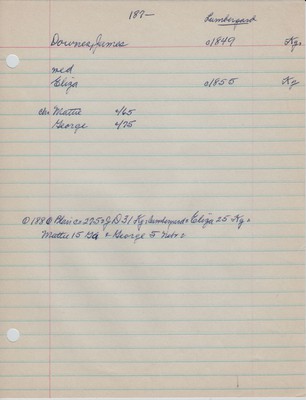 187— Lumberyard
Downes, James c1849 Ky.
med
Eliza c1855 Ky
ch: Mattie c/65
George c/75
188 Co 225 J D 31 Ky Lumberyard Eliza 25 Ky
Mattie 15 & George 5